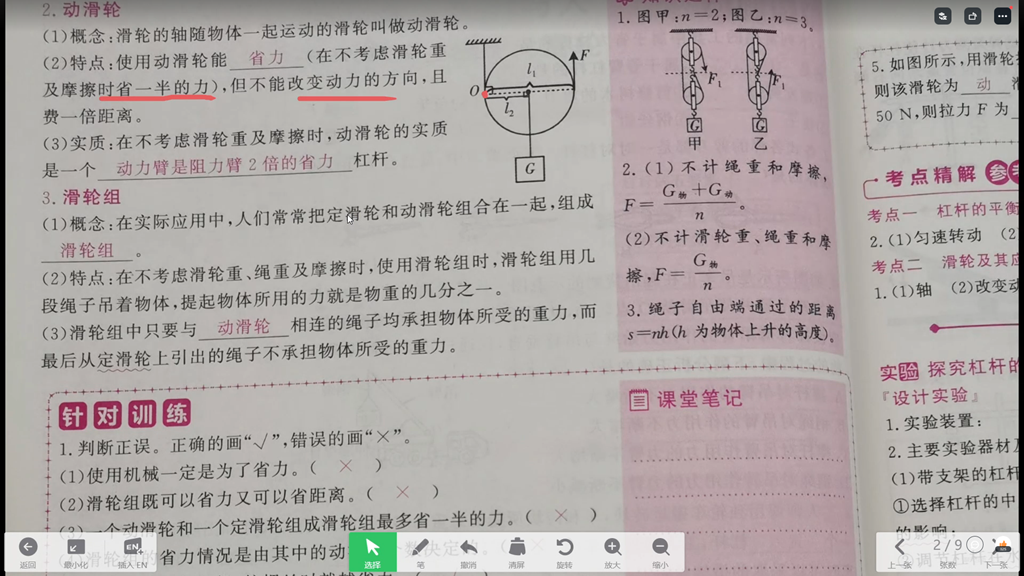 2. 动滑轮
(1)概念:滑轮的轴随物体一起运动的滑轮叫做动滑轮。
(2)特点:使用动滑轮能 省力 (在不考虑滑轮重
及摩擦时省一半的力),但不能改变动力的方向,且
费一倍距离。
(3)实质:在不考虑滑轮重及摩擦时,动滑轮的实质
是一个 动力臂是阻力臂2倍的省力 杠杆。
O
l₁
l₂
F
G
3. 滑轮组
(1)概念:在实际应用中,人们常常把定滑轮和动滑轮组合在一起,组成
滑轮组 。
(2)特点:在不考虑滑轮重、绳重及摩擦时,使用滑轮组时,滑轮组用几
段绳子吊着物体,提起物体所用的力就是物重的几分之一。
(3)滑轮组中只要与 动滑轮 相连的绳子均承担物体所受的重力,而
最后从定滑轮上引出的绳子不承担物体所受的重力。
针对训练
1. 判断正误。正确的画“√”,错误的画“×”。
(1)使用机械一定是为了省力。( × )
(2)滑轮组既可以省力又可以省距离。( × )
(3)一个动滑轮和一个定滑轮组成滑轮组最多省一半的力。( × )
省力情况是由其中的动
1. 图甲:n=2;图乙:n=3。
F₁
F₁
G
G
甲
乙
2. (1)不计绳重和摩擦,
F=(G物+G动)/n。
(2)不计滑轮重、绳重和摩
擦,F=G物/n。
3. 绳子自由端通过的距离
s=nh(h为物体上升的高度)。
课堂笔记
5. 如图所示,用滑轮
则该滑轮为 动 滑
50 N,则拉力 F 为
考点精解
考点一 杠杆的平衡
2. (1)匀速转动 (2)
考点二 滑轮及其应
1. (1)轴 (2)改变动
实验 探究杠杆的
『设计实验』
1. 实验装置:
2. 主要实验器材及
(1)带支架的杠杆
①选择杠杆的中
的影响;
返回
最小化
EN
插入EN
选择
笔
撤消
清屏
旋转
放大
缩小
上一张
2/9
张数
下一张